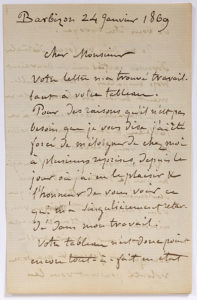 Barbizon 24 Janvier 1869
Cher Monsieur
Votre lettre m'a trouvé travail-
lant à votre tableau.
Pour des raisons qu'il n'est pas
besoin que je vous dise j'ai été
forcé de m'éloigner de chez moi
à plusieurs reprises, depuis le
jour où j'ai eu le plaisir &
l'honneur de vous voir ce
qui m'a singulièrement retar-
dé dans mon travail.
Votre tableau n'est donc point
encore tout-à-fait en état